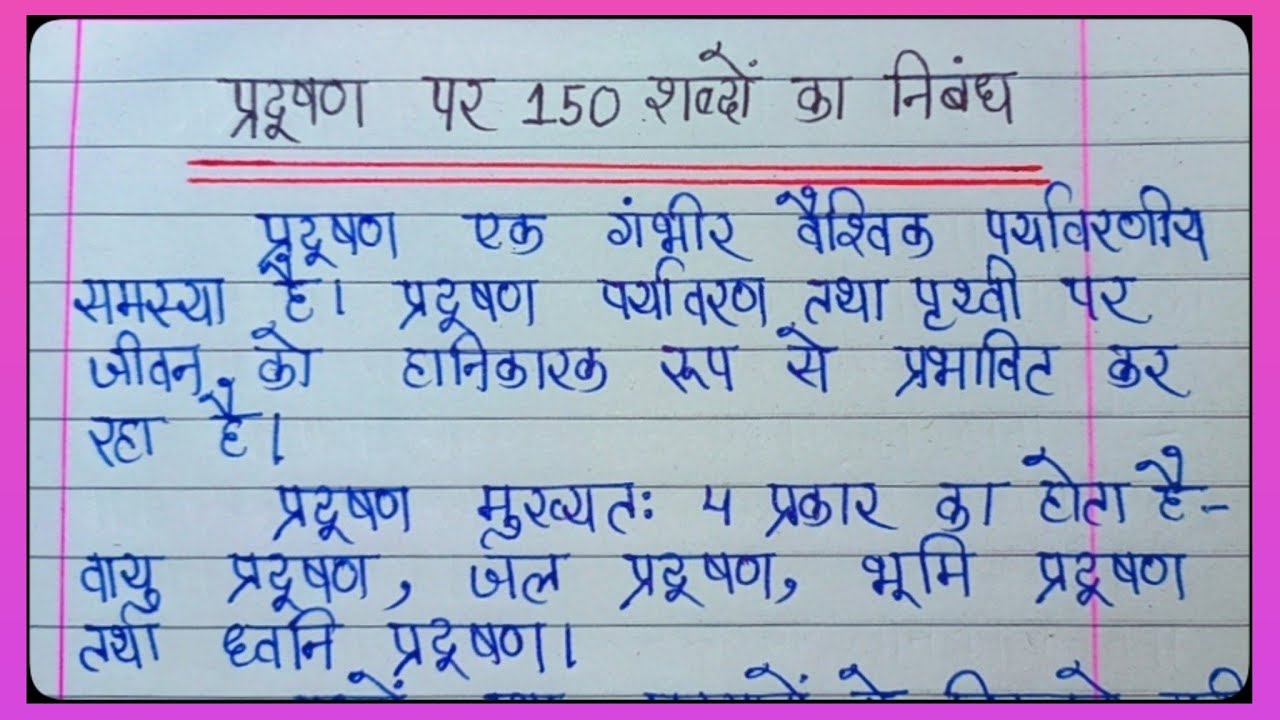 प्रदूषण पर 150 शब्दों का निबंध
प्रदूषण एक गंभीर वैश्विक पर्यावरणीय
समस्या है। प्रदूषण पर्यावरण तथा पृथ्वी पर
जीवन को हानिकारक रूप से प्रभावित कर
रहा है।
प्रदूषण मुख्यतः 4 प्रकार का होता है-
वायु प्रदूषण, जल प्रदूषण, भूमि प्रदूषण
तथा ध्वनि प्रदूषण।